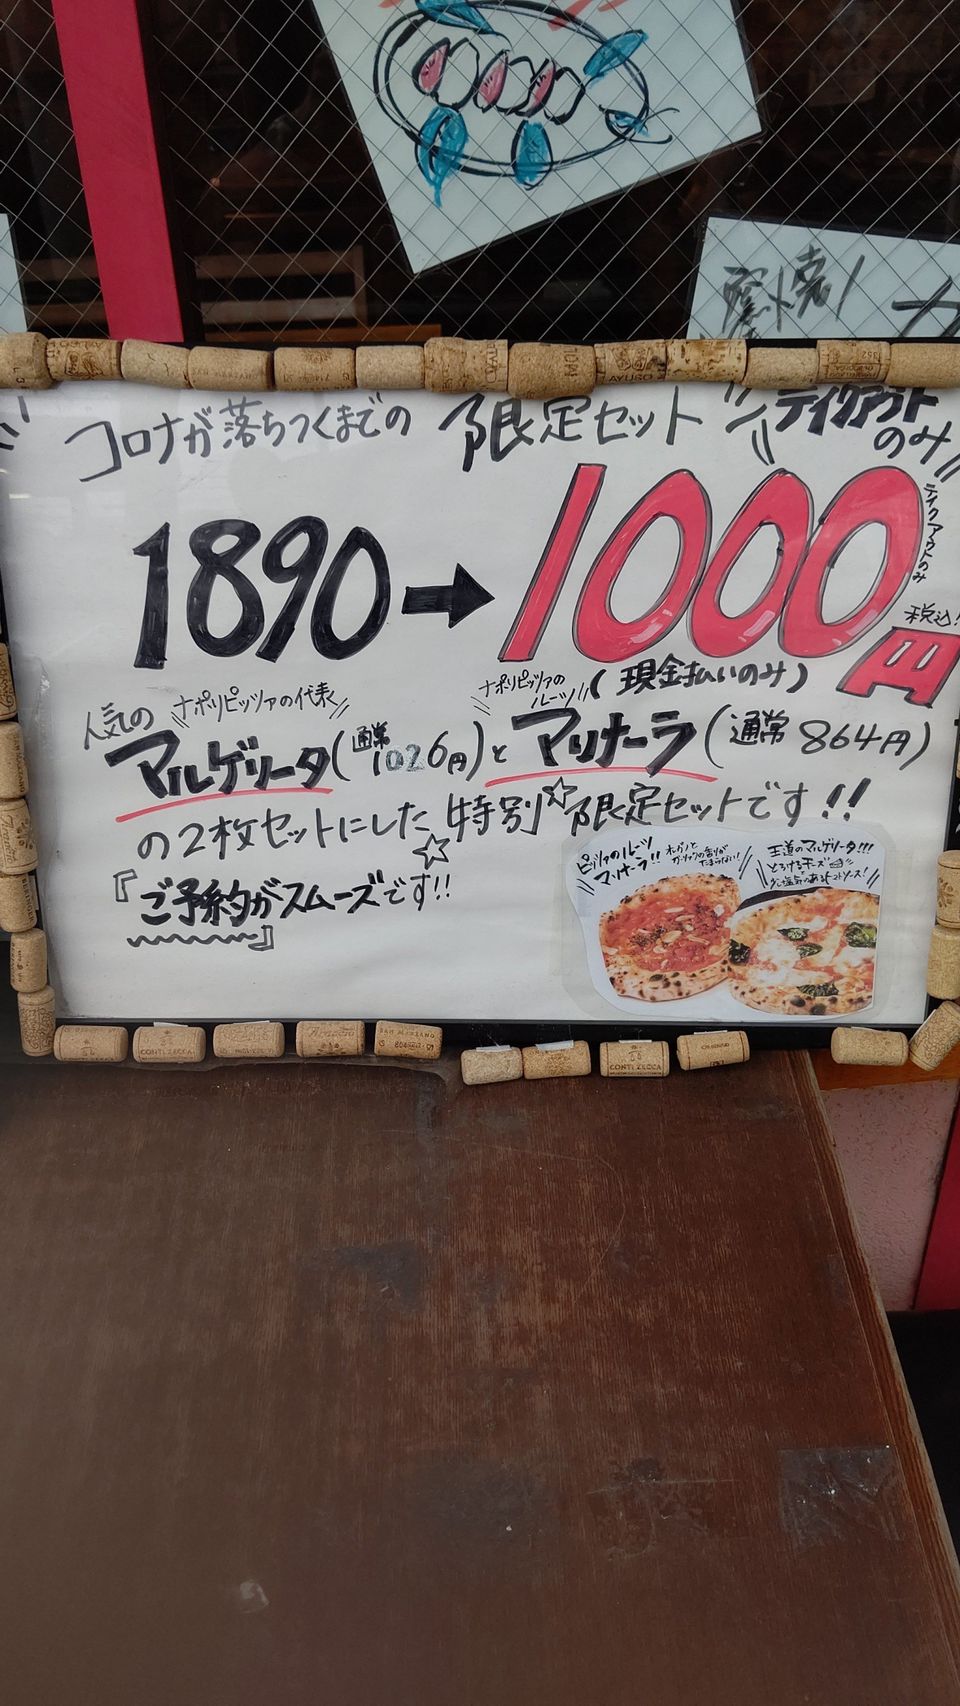 窯焼
コロナが落ちつくまでの 限定セット テイクアウト
のみ
1890→1000円
テイクアウトのみ
税込!
(現金払いのみ)
ナポリピッツァの代表
ナポリピッツァの
ルーツ!!
人気の
マルゲリータ(通常1026円)と マリナーラ(通常 864円)
の2枚セットにした 特別☆限定セットです!!
『ご予約がスムーズです!!
』
ピッツァのルーツ
マリナーラ!!
王道のマルゲリータ!!!
とろけるチーズ
CONTI ZECCA
SAN MARZANO
CONTI ZECCA